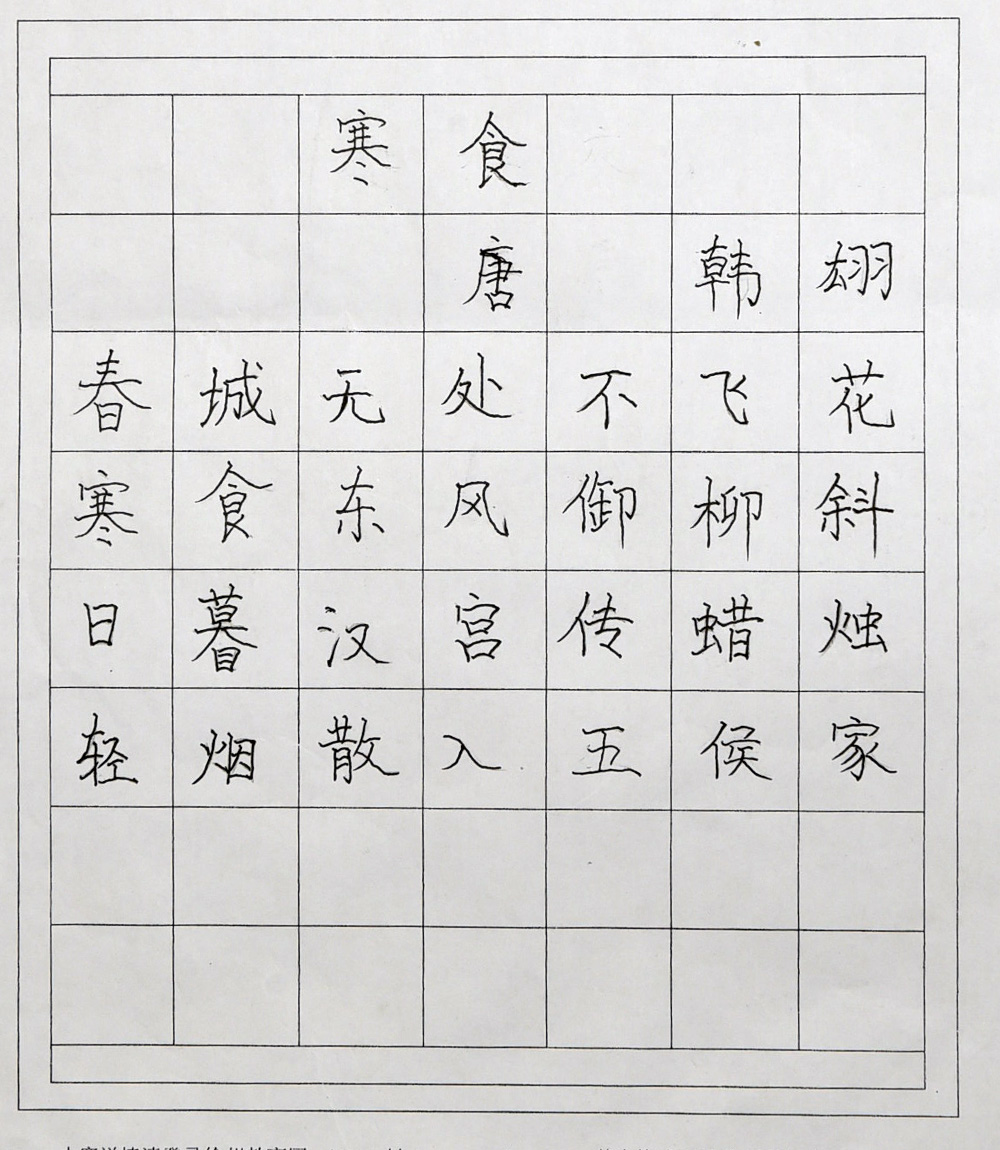 寒食
唐 韩翃
春城无处不飞花
寒食东风御柳斜
日暮汉宫传蜡烛
轻烟散入五侯家